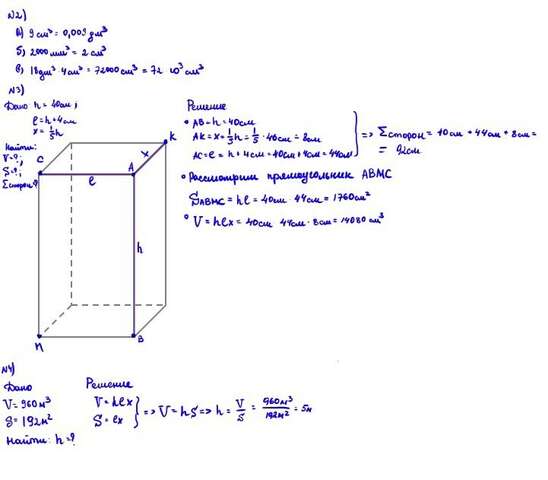 N2)
а) 9 см³ = 0,009 дм³
б) 2000 мм³ = 2 см³
в) 18 дм³ 4 см³ = 72000 см³ = 72 10³ см³
N3)
Дано h = 40 см;
l = h + 4 см
x = 1/5 h
Найти:
V = ?;
S = ?;
Σ сторон ?
C
A
K
x
l
h
M
B
Решение
AB = h = 40 см
AK = x = 1/5 h = 1/5 · 40 см = 8 см
AC = l = h + 4 см = 40 см + 4 см = 44 см
=> Σ сторон = 40 см + 44 см + 8 см =
= 92 см
Рассмотрим прямоугольник ABMC
S ABMC = hl = 40 см · 44 см = 1760 см²
V = hlx = 40 см 44 см · 8 см = 14080 см³
N4)
Дано
V = 960 м³
S = 192 м²
Найти: h = ?
Решение
V = hlx
S = lx
=> V = hS => h = V/S = 960 м³/192 м² = 5 м